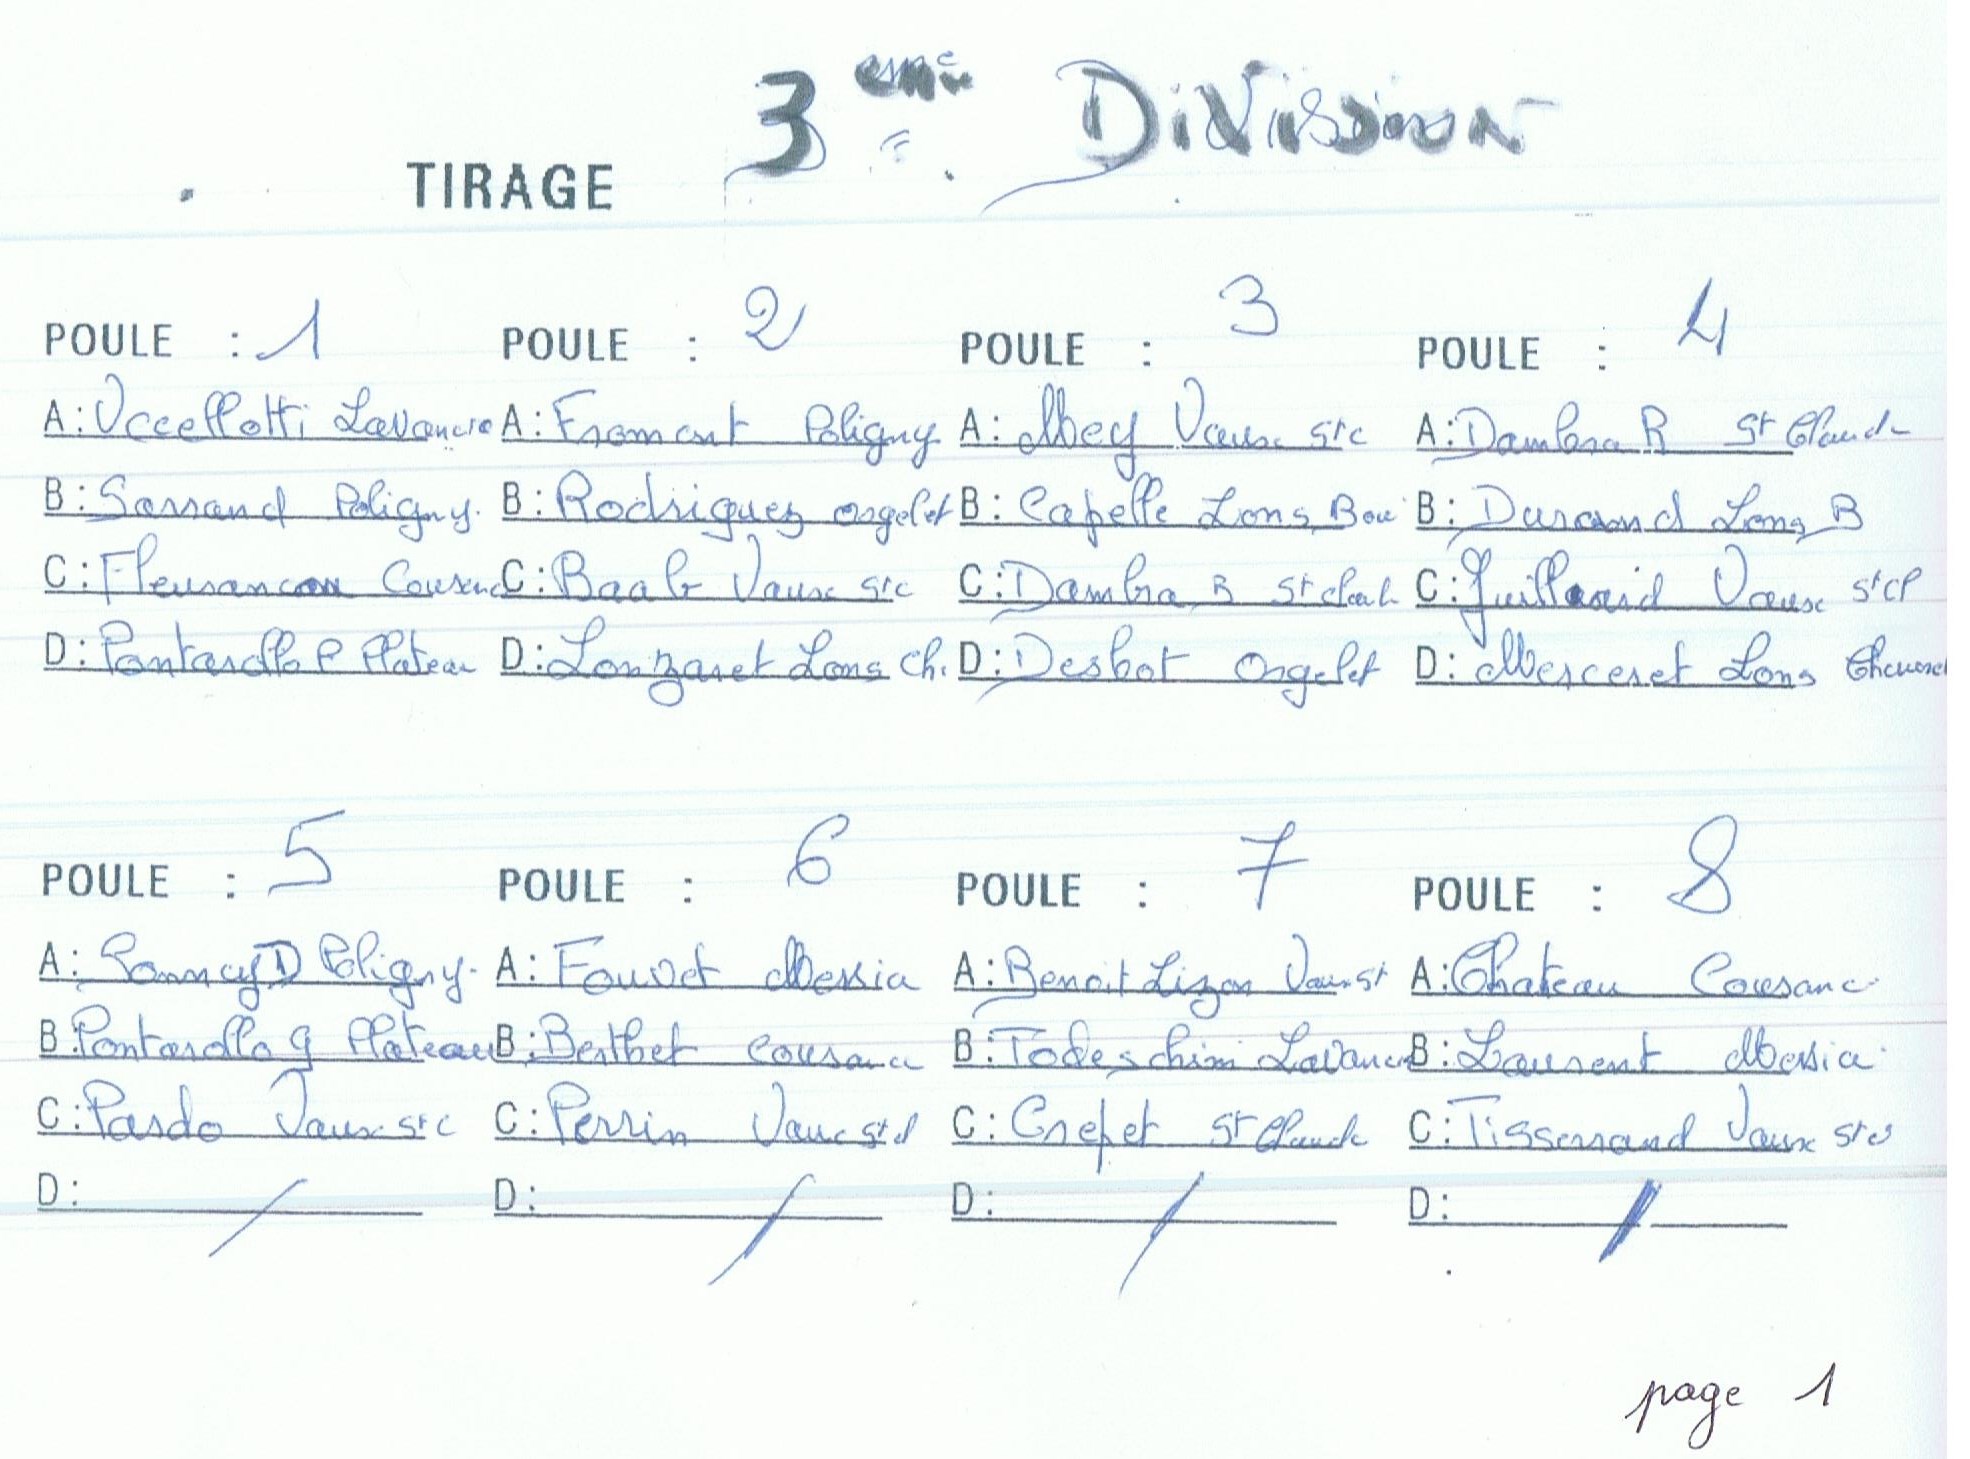 3eme DiVision
TIRAGE
POULE : 1
A: Uccellotti Lavancia
B: Sarrand Poligny.
C: Fleurancon Cousanc
D: Pontarollo P Plateau
POULE : 2
A: Fromont Poligny
B: Rodriguez orgelet
C: Baab Vaux stc
D: Lonzaret Lons Ch.
POULE : 3
A: Mey Vaux stc
B: Capelle Lons Bou
C: Dambra B St Claude
D: Desbot Orgelet
POULE : 4
A: Dambra R St Claude
B: Durand Lons B
C: Guillard Vaux st Cl
D: Merceret Lons Chevreul
POULE : 5
A: Sonnay D Poligny.
B: Pontarollo G Plateau
C: Pardo Vaux stc
D: /
POULE : 6
A: Fouvet Messia
B: Berthet Cousance
C: Perrin Vaux st Cl
D: /
POULE : 7
A: Benoit Lizon Vaux st
B: Todeschini Lavancia
C: Crepet St Claude
D: /
POULE : 8
A: Chateau Cousance
B: Laurent Messia
C: Tisserand Vaux st Cl
D: /
page 1